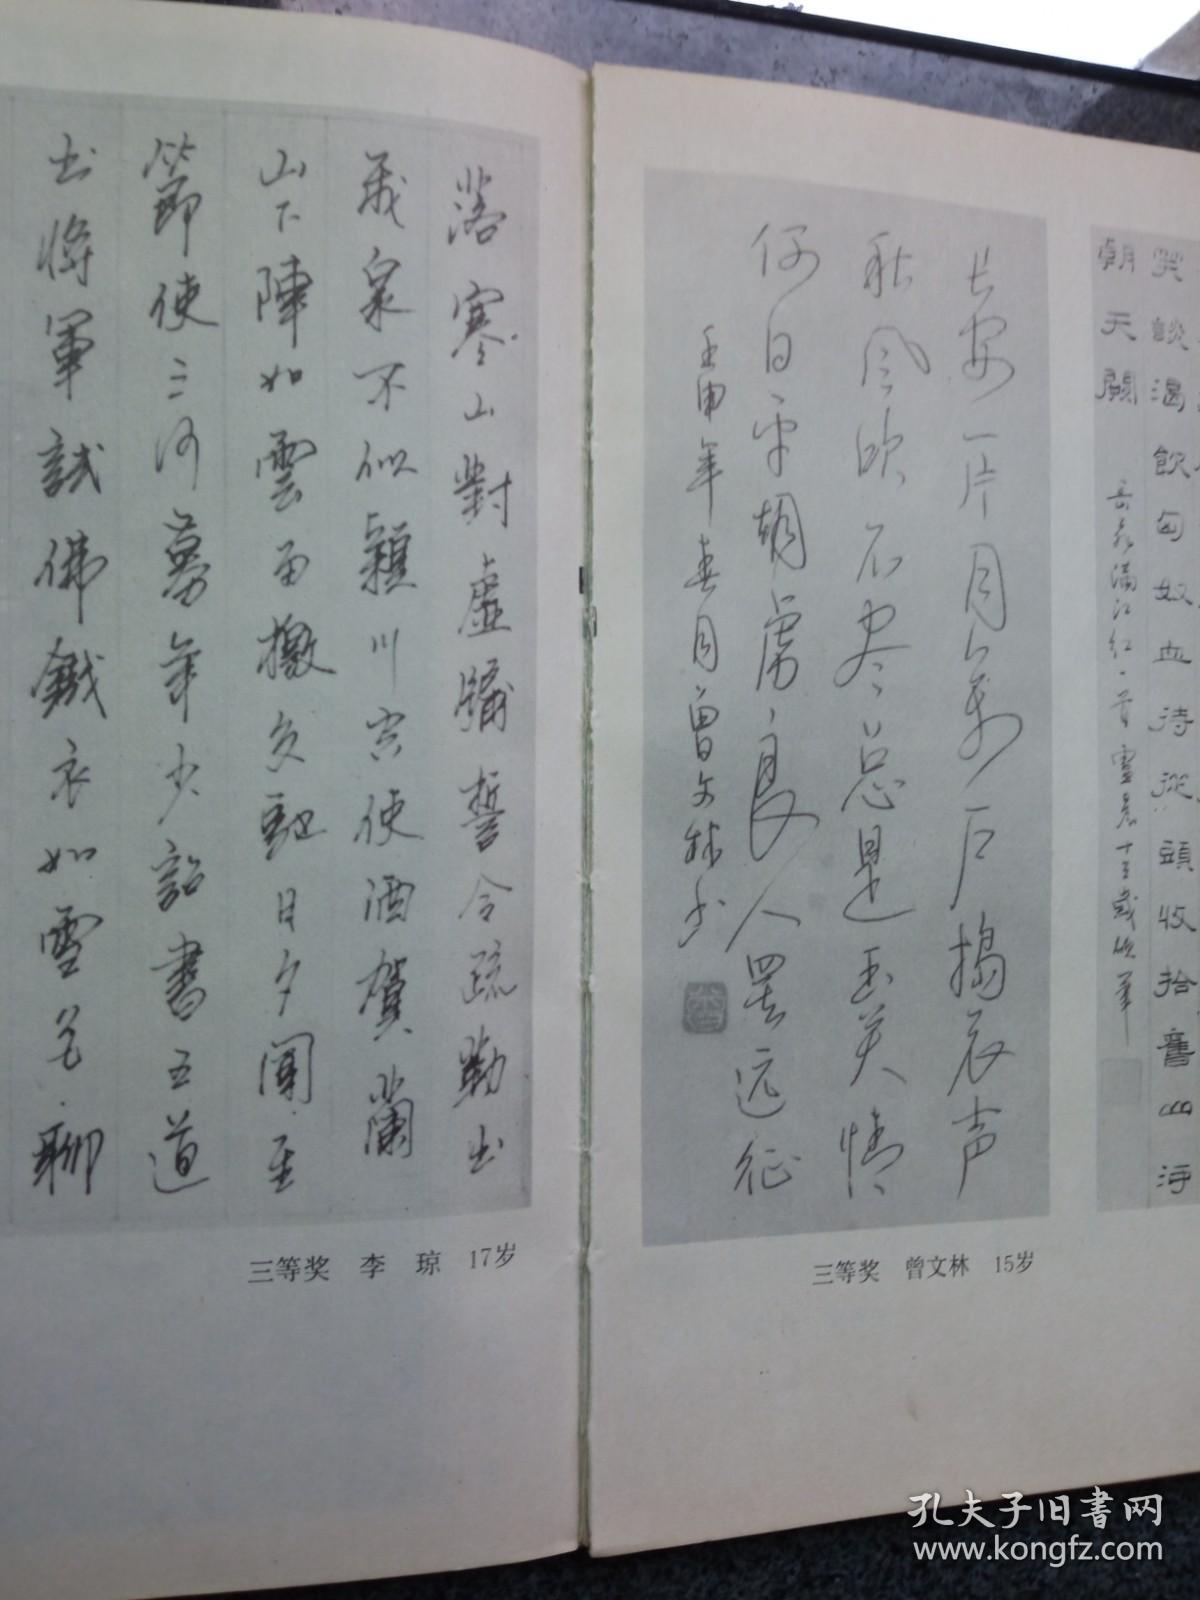 笑談渴飲匈奴血待從頭收拾舊山河
朝天闕
岳飛滿江紅一首
长安一片月万户捣衣声
秋风吹不尽总是玉关情
何日平胡虏良人罢远征
壬申年春月曾文林书
三等奖 曾文林 15岁
落寒山對虛牖誓令疏勒出
飛泉不似潁川空使酒賀蘭
山下陣如雲羽檄交馳日夕聞
節使三河募年少詔書五道
出將軍試拂鐵衣如雪色聊
三等奖 李琼 17岁
孔夫子旧书网
www.kongfz.com